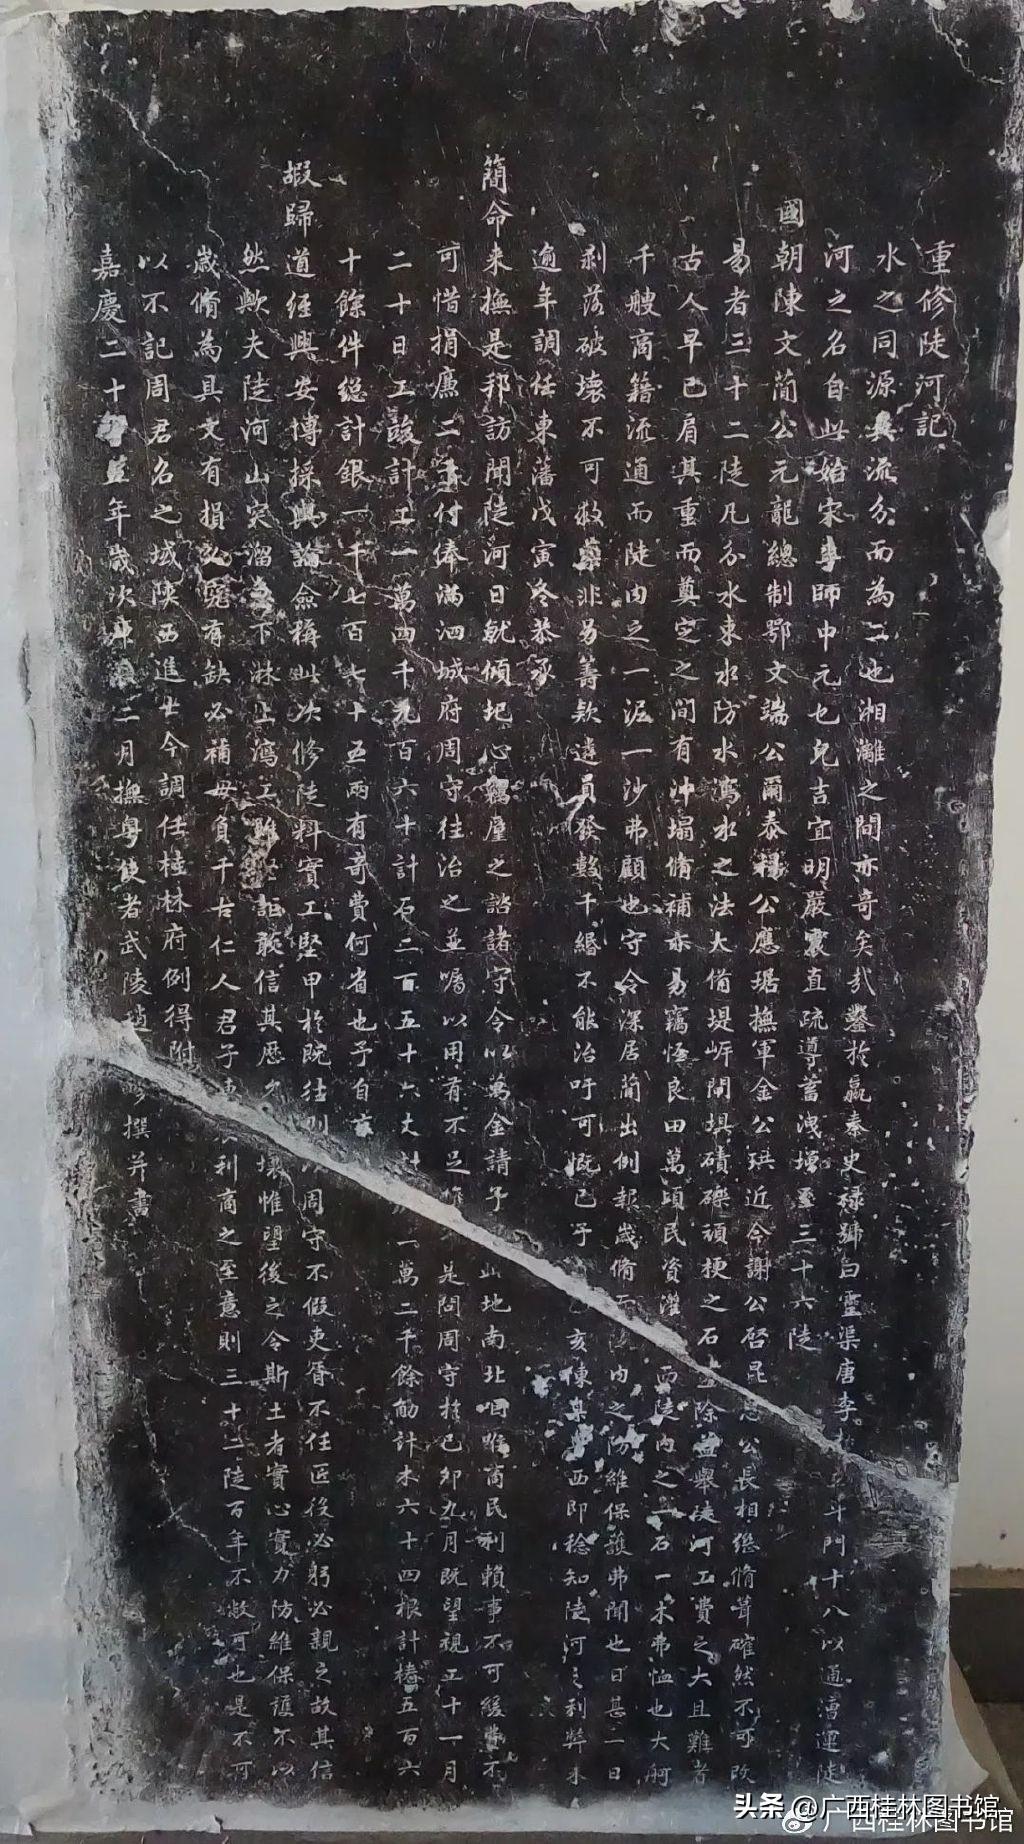 重修陡河記
水之同源與流分而為二也湘灕之間亦奇矣哉鑿於嬴秦史祿號曰靈渠唐李斗門十八以通漕運陡
河之名自此始宋李師中元乜兒吉宜明嚴震直疏導蓄洩增至三十六陡
國朝陳文簡公元龍總制鄂文端公爾泰楊公應琚撫軍金公珙近今謝公啓昆公長相繼脩葺確然不可改
易者三十二陡凡分水束水防水瀉水之法大脩堤岸閘堤磧礫頑梗之石除益舉陡河工費之大且難者
古人早已肩其重而奠定之間有沖塌脩補亦易竊怪良田萬頃民資灌而陡內之一石一木弗恤也大舸
千艘商籍流通而陡內之一泥一沙弗顧也守令深居簡出例報歲脩內之防維保護弗聞也日甚一日
剥落破壞不可救藥非另籌款遴員發數千緡不能治吁可慨已予亥陳臬西即稔知陡河之利弊未
逾年調任東藩戊寅冬恭承
簡命来撫是邦訪聞陡河日就傾圮心竊廑之諮諸守令以萬金請予此地南北咽喉商民利賴事不可緩帑不
可惜捐廉二千付俸滿泗城府周守往治之並囑以用有不足是問周守於己卯九月既望視工十一月
二十日工竣計工一萬四千九百六十計石二百五十六丈一萬二千餘觔計木六十四根計樁五百六
十餘件總計銀一千七百七十五兩有奇費何省也予自京
嘏歸道經興安博採輿論僉稱此次修陡料實工堅甲於既往周守不假吏胥不任匠役必躬必親之故其信
然歟夫陡河山穾溜下淋上瀉工雖詎敢信其歷久壞惟望後之令斯土者實心實力防維保護不以
歲脩為具文有損必寵有缺必補毋負千古仁人君子利商之至意則三十二陡百年不敝可也是不可
以不記周君名之域陝西進士今調任桂林府例得附
嘉慶二十五年歲次庚二月撫粤使者武陵趙撰并書
头条 @广西桂林图书馆
广西桂林图书馆